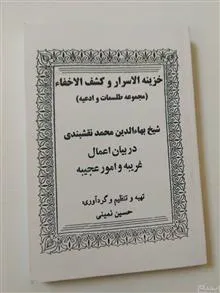 خزینه الاسرار و کشف الاخفاء
(مجموعه طلسمات و ادعیه)
شیخ بهاءالدین محمد نقشبندی
در بیان اعمال
غریبه و امور عجیبه
تهیه و تنظیم و گردآوری:
حسین نمینی